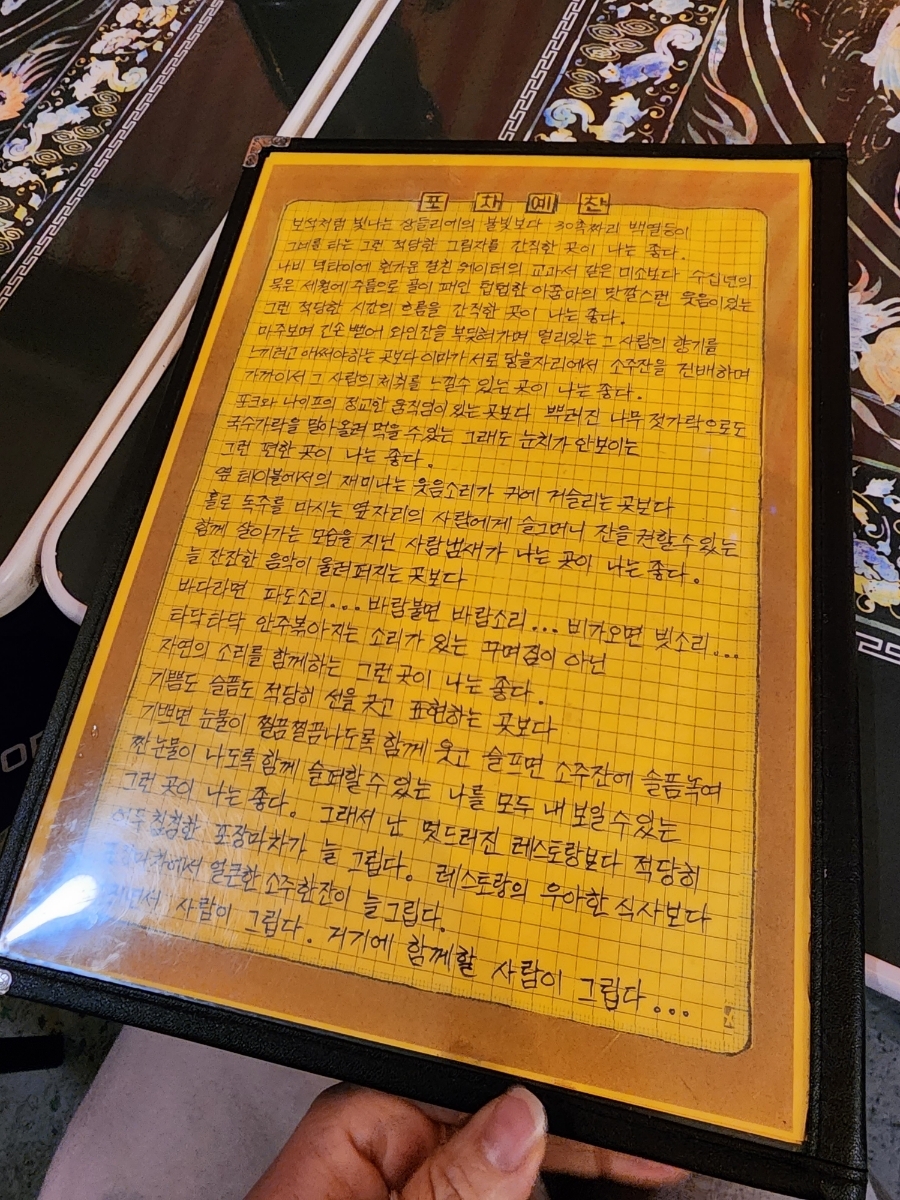 포차예찬
보석처럼 빛나는 샹들리에의 불빛보다 30촉짜리 백열등이
그네를 타는 그런 적당한 그림자를 간직한 곳이 나는 좋다.
나비 넥타이에 흰가운 걸친 웨이터의 교과서 같은 미소보다 수십년의
묵은 세월에 주름으로 골이 패인 텁텁한 아줌마의 맛깔스런 웃음이있는
그런 적당한 시간의 흐름을 간직한 곳이 나는 좋다.
마주보며 긴손 뻗어 와인잔을 부딪혀가며 멀리있는 그 사람의 향기를
느끼려고 애써야하는 곳보다 이마가 서로 닿을자리에서 소주잔을 건배하며
가까이서 그 사람의 체취를 느낄수 있는 곳이 나는 좋다.
포크와 나이프의 정교한 움직임이 있는 곳보다 뿌러진 나무 젓가락으로도
국수가락을 말아올려 먹을 수 있는 그래도 눈치가 안보이는
그런 편한 곳이 나는 좋다.
옆 테이블에서의 재미나는 웃음소리가 귀에 거슬리는 곳보다
홀로 독주를 마시는 옆자리의 사람에게 슬그머니 잔을 권할수있는
함께 살아가는 모습을 지닌 사람냄새가 나는 곳이 나는 좋다.
늘 잔잔한 음악이 울려퍼지는 곳보다
바다라면 파도소리... 바람불면 바람소리... 비가오면 빗소리...
타닥타닥 안주볶아지는 소리가 있는 꾸며짐이 아닌
자연의 소리를 함께하는 그런곳이 나는 좋다.
기쁨도 슬픔도 적당히 선을 긋고 표현하는 곳보다
기쁘면 눈물이 찔끔찔끔나도록 함께 웃고 슬프면 소주잔에 슬픔녹여
짠눈물이 나도록 함께 슬퍼할 수 있는 나를 모두 내 보일수있는
그런 곳이 나는 좋다. 그래서 난 멋드러진 레스토랑보다 적당히
침침한 포장마차가 늘 그립다. 레스토랑의 우아한 식사보다
포장마차에서 얼큰한 소주한잔이 늘그립다.
사람이 그립다. 거기에 함께할 사람이 그립다...